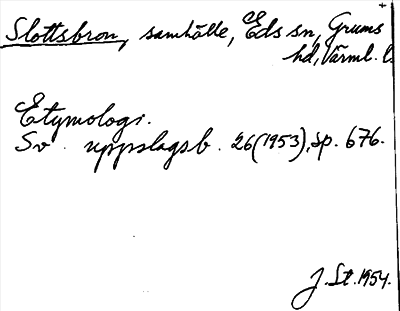 Slottsbron, samhälle, Eds sn, Grums
hd, Värml. l.
Etymologi.
Sv. uppslagsb. 26(1953), sp. 676.
J. St. 1954.